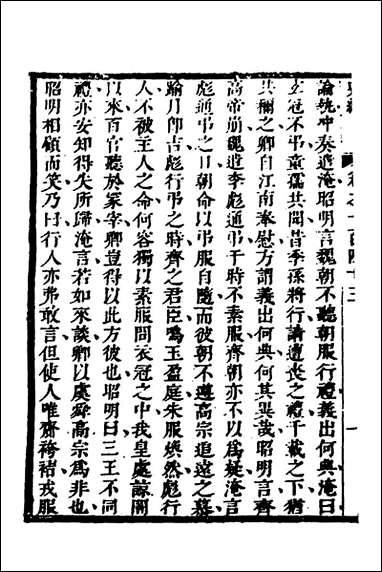 卷之一百四十三 一
論執冲奏遣淹昭明言魏朝不聽朝服行禮義出何典淹曰
玄冠不弔童孺共聞昔季孫將行請遭喪之禮千載之下猶
共稱之卿自江南奉慰方謂義出何典何其異哉昭明言齊
高帝崩魏遣李彪通弔于時不素服齊朝亦不以爲疑淹言
彪通弔之日朝命以弔服自隨而彼朝不遵高宗追遠之慕
踰月卽吉彪行弔之時齊之君臣鳴玉盈庭朱服煥然彪行
人不被主人之命何容獨以素服間衣冠之中我皇處諒闇
以來百官聽於冢宰卿豈得以此方彼也昭明曰三王不同
禮亦安知得失所歸淹言若如來談卿以虞舜高宗爲非也
昭明相顧而笑乃曰行人亦弗敢言但使人唯齎袴褶戎服